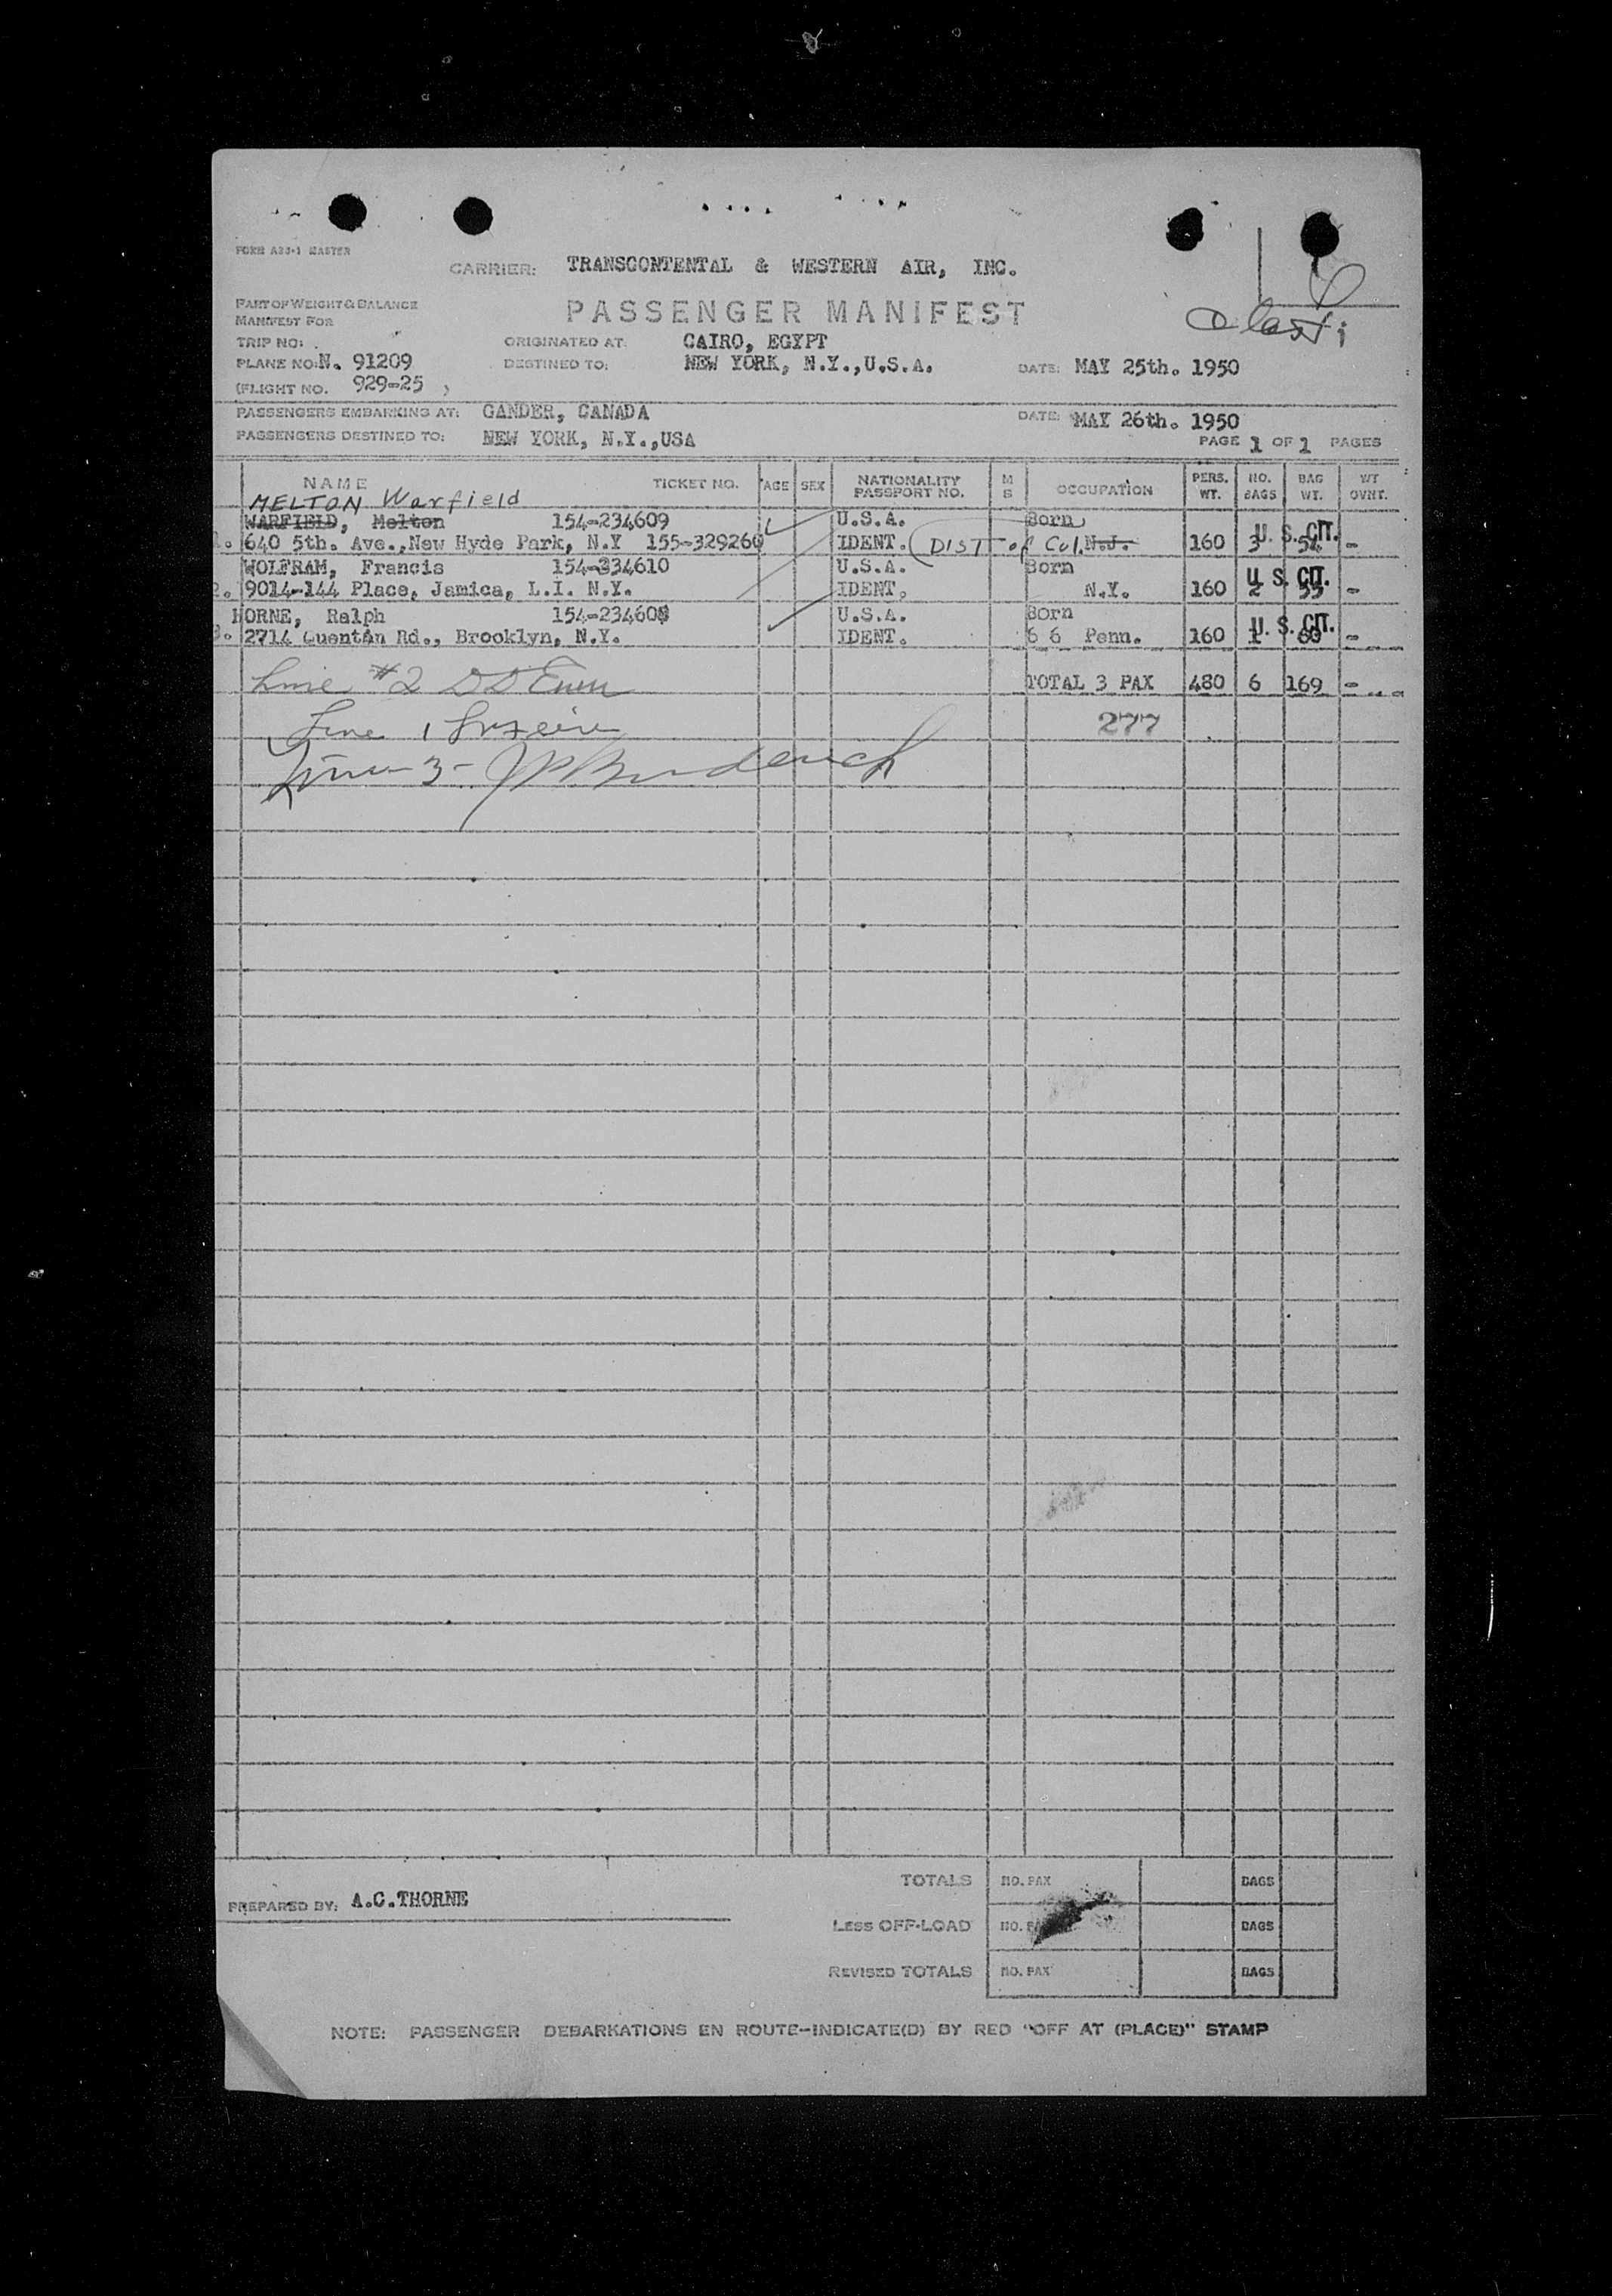 FORM A20-1 MASTER
CARRIER: TRANSCONTENTAL & WESTERN AIR, INC.
PART OF WEIGHT & BALANCE
MANIFEST FOR
PASSENGER MANIFEST
TRIP NO: ORIGINATED AT: CAIRO, EGYPT
PLANE NO: N. 91209 DESTINED TO: NEW YORK, N.Y.,U.S.A. DATE: MAY 25th. 1950
(FLIGHT NO. 929-25 )
PASSENGERS EMBARKING AT: GANDER, CANADA DATE: MAY 26th. 1950
PASSENGERS DESTINED TO: NEW YORK, N.Y.,USA PAGE 1 OF 1 PAGES
NAME TICKET NO. AGE SEX NATIONALITY PASSPORT NO. M S OCCUPATION PERS. WT. NO. BAGS BAG WT. WT OVHT.
MELTON Warfield
WARFIELD, Melton 154-234609 U.S.A. Born U. S. CIT.
1. 640 5th. Ave.,New Hyde Park, N.Y 155-329260 IDENT. (DIST of Col. N.J. 160 3 54 -
WOLFRAM, Francis 154-234610 U.S.A. Born U. S. CIT.
2. 9014-144 Place, Jamica, L.I. N.Y. IDENT. N.Y. 160 2 55 -
HORNE, Ralph 154-234608 U.S.A. Born U. S. CIT.
3. 2714 Quentin Rd., Brooklyn, N.Y. IDENT. 6 6 Penn. 160 1 60 -
Line #2 TOTAL 3 PAX 480 6 169 -
Line 1 277
Line 3-
TOTALS NO. PAX BAGS
PREPARED BY: A.C.THORNE
LESS OFF-LOAD NO. PAX BAGS
REVISED TOTALS NO. PAX BAGS
NOTE: PASSENGER DEBARKATIONS EN ROUTE-INDICATE(D) BY RED "OFF AT (PLACE)" STAMP